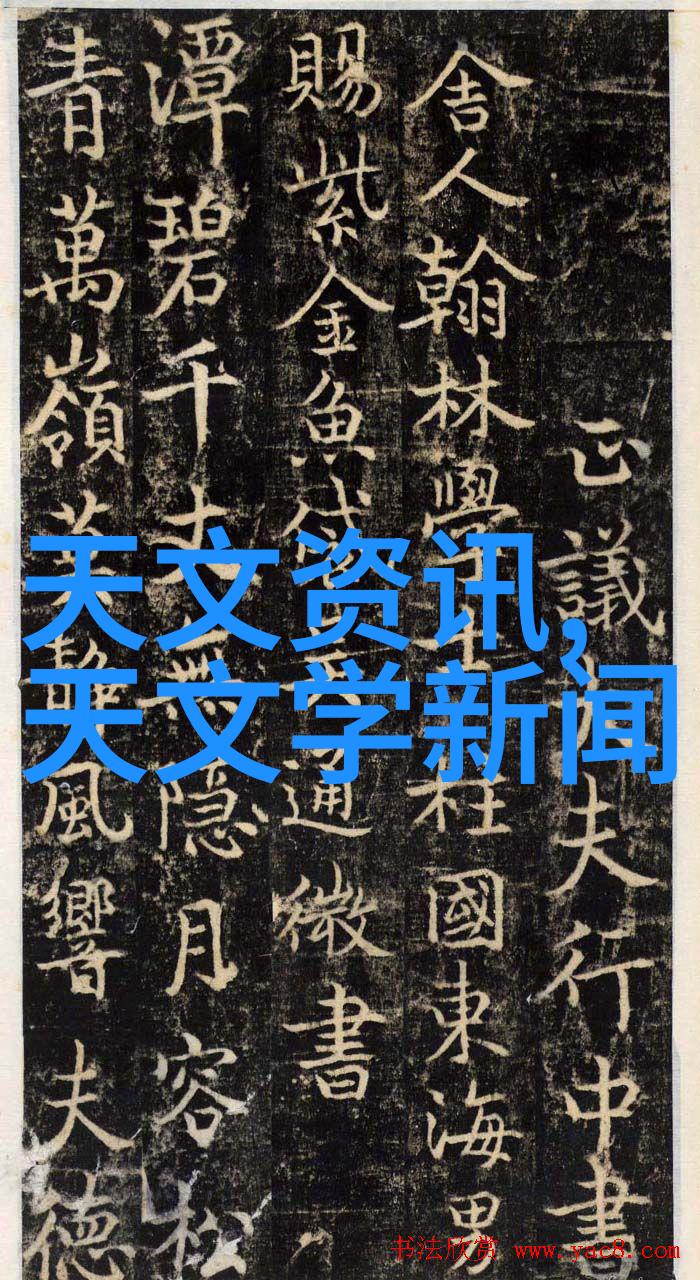 正議大夫行中書
舍人翰林學士柱國東海男
賜紫金魚袋通微書
潭碧千丈無隱月容松
青萬嶺葉靜風響夫德
天文资讯,
天文学新闻
书法欣赏 www.yac8.com